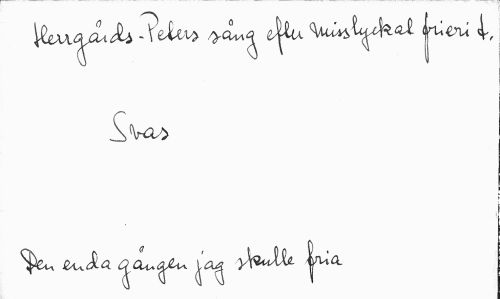 Herrgårds-Peters sång efter misslyckat frieri t.
Svas
Den enda gången jag skulle fria